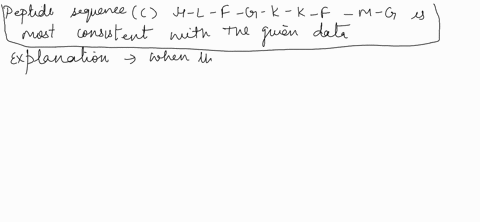 Peptide sequence (C) M-L-F-G-K-K-F-M-G is
most consistent with the given data
Explanation → when